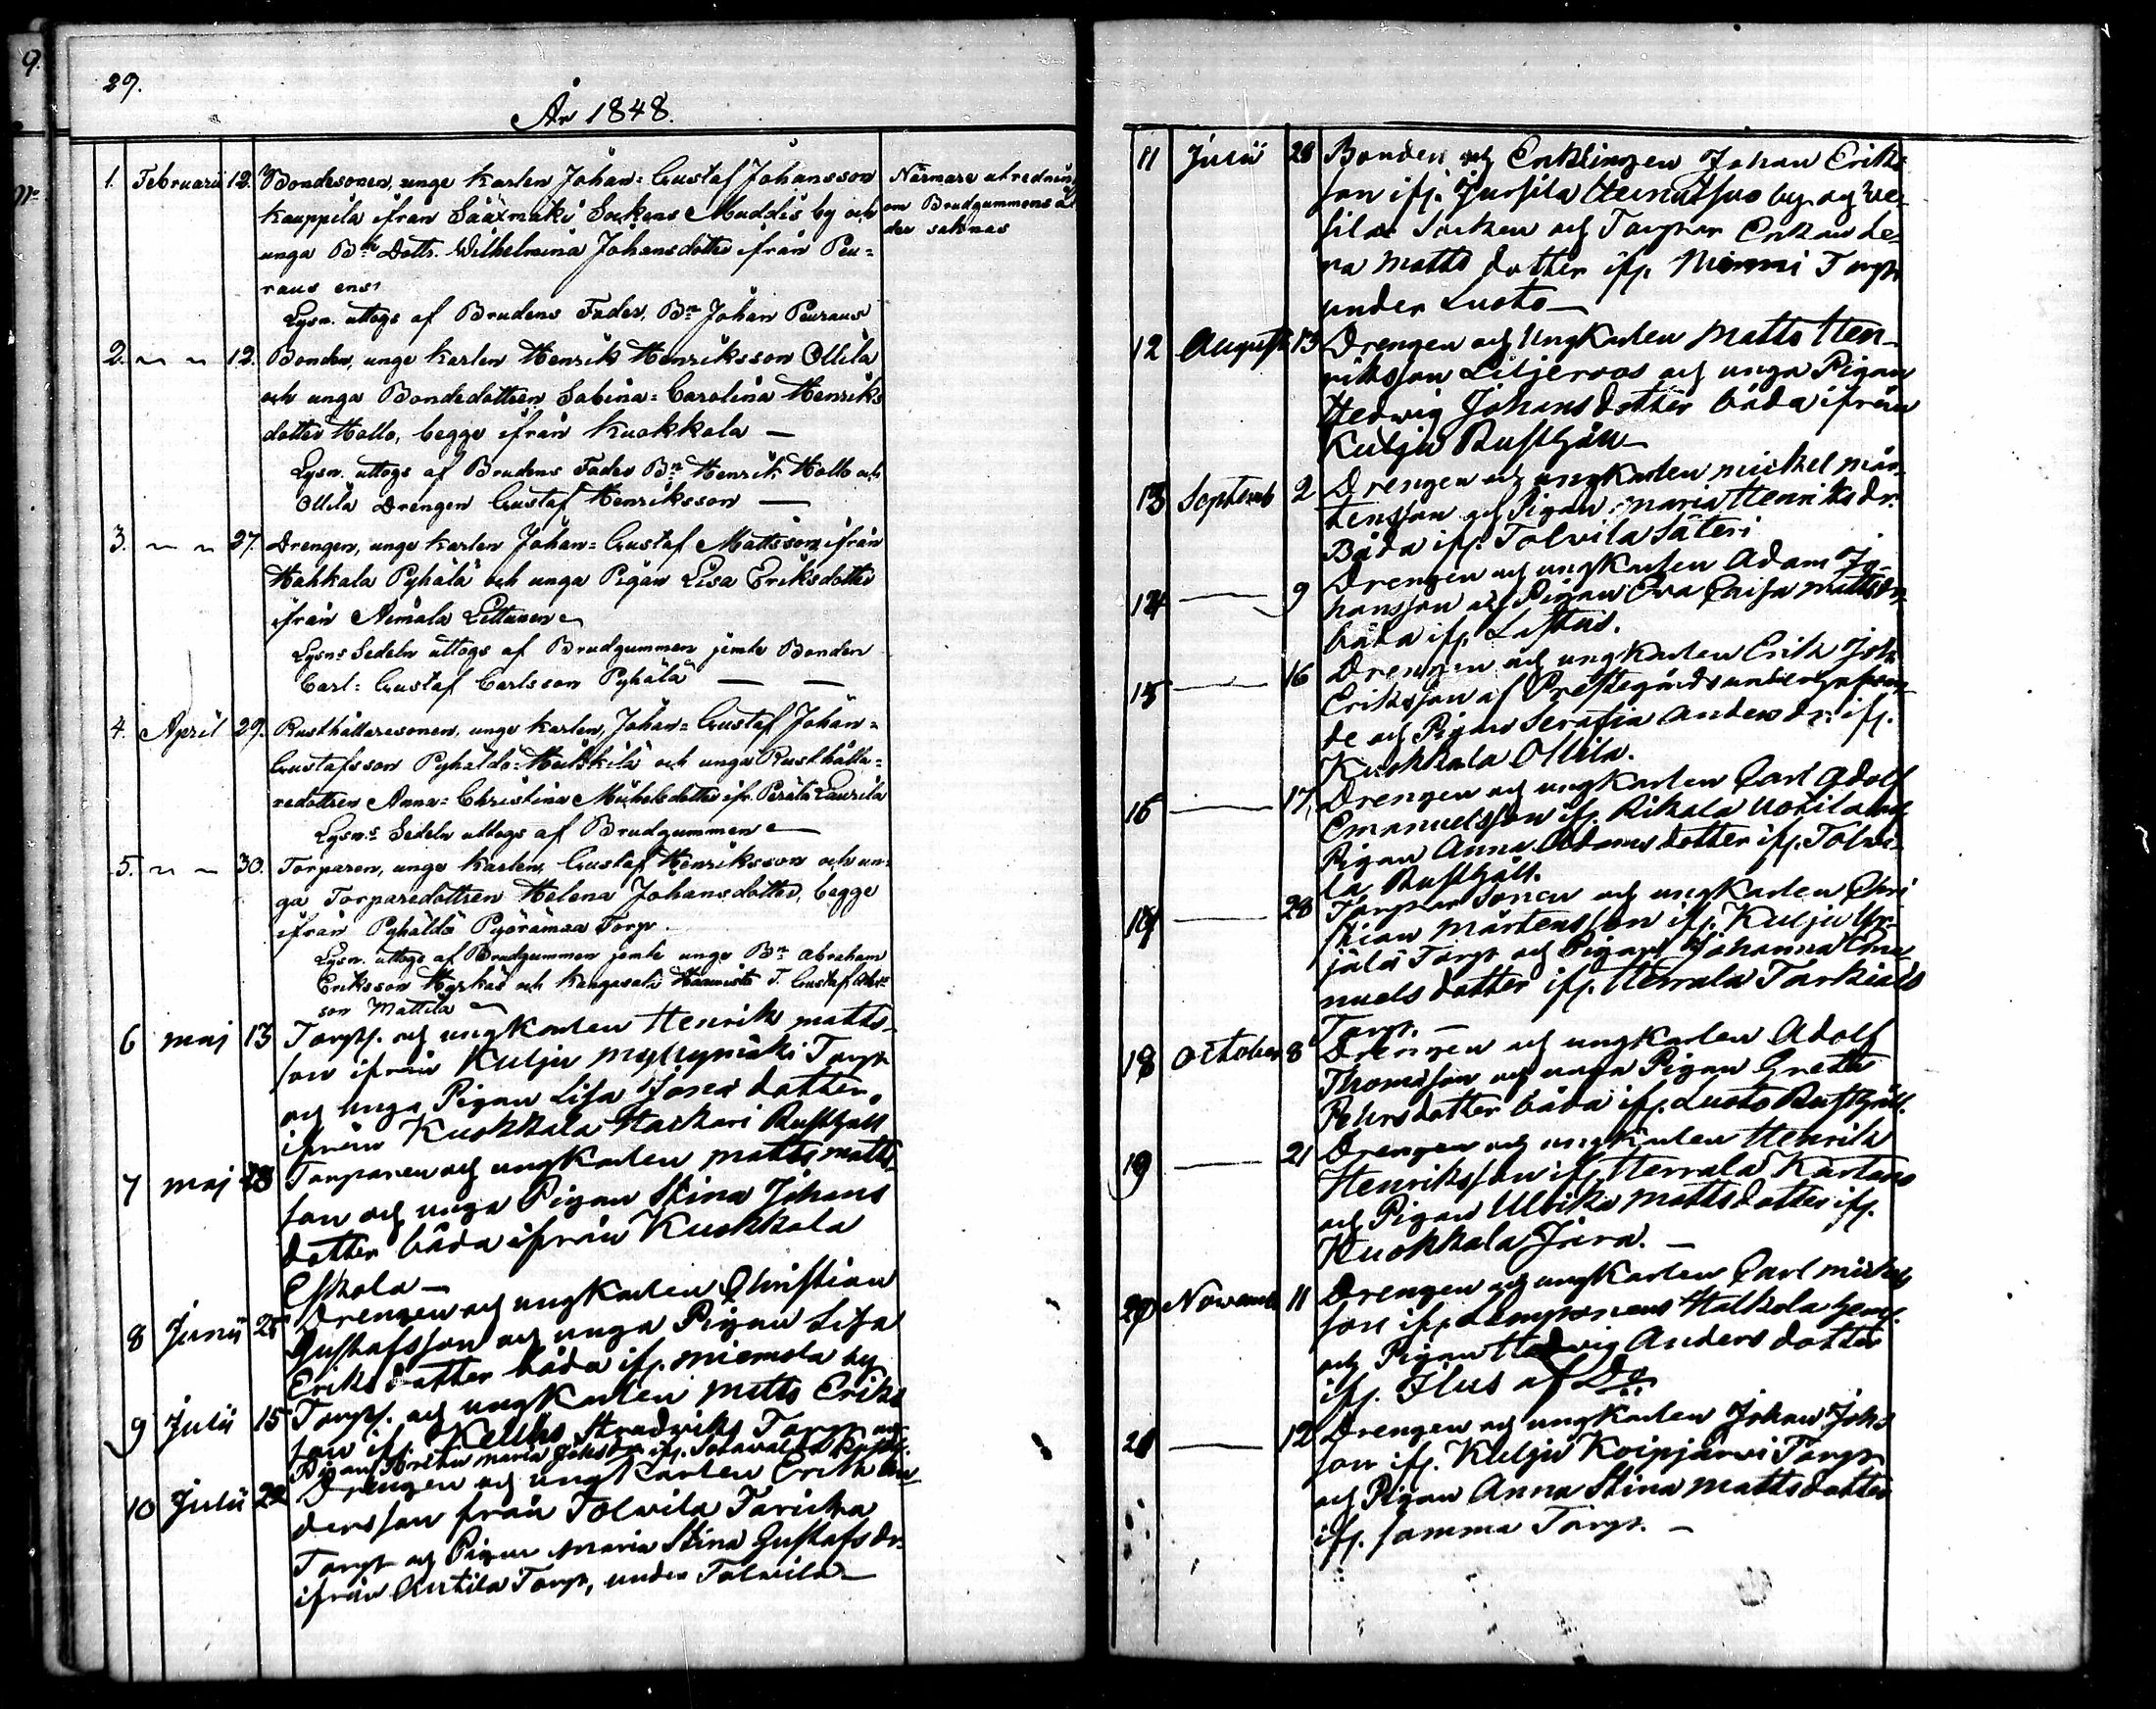 9.
No
29.
År 1848.
1. Februarii 12. Bondesonen, unge karlen Johan-Gustaf Johansson Närmare utredning
Kauppila ifrån Sääxmäki Sockens Muddis by och om Brudgummens ål
unga Bn Dottr. Wilhelmina Johansdotter ifrån Peu= der saknas
raus ens.
Lysn. uttogs af Brudens Fader, Bn Johan Peuraus
2. ~ ~ 12. Bonden, unge karlen Henrik Henriksson Ollila
och unga Bondedottren Sabina=Carolina Henriks
dotter Hollo, begge ifrån Kuokkala —
Lysn. uttogs af Brudens Fader Bn Henrik Hollo och
Ollila Drengen Gustaf Henriksson —
3. ~ ~ 27. Drengen, unge karlen Johan=Gustaf Mattsson ifrån
Hahkala Pyhälä och unga Pigan Lisa Eriksdotter
ifrån Nemala Littunen
Lysns Sedeln uttogs af Brudgummen jemte Bonden
Carl=Gustaf Carlsson Pyhälä — —
4. April 29. Rusthållaresonen, unge karlen, Johan=Gustaf Johan=
Gustafsson Pyhäldö=Hulskilä och unga Rusthålla=
redottren Anna=Christina Michelsdotter ifr. Perälä Laurila
Lysn:s Sedeln uttogs af Brudgummen —
5. ~ ~ 30. Torparen, unge karlen, Gustaf Henriksson och un=
ga Torparedottren Helena Johansdotter, begge
ifrån Pyhäldö Pyörämaa Torp
Lysn. uttogs af Brudgummen jemte unge Bn Abraham
Eriksson Hyrkäs och Kangasala
son Mattila
6 maj 13 Torps. och ungkarlen Henrik Matts-
son ifrån Kulju Myllymäki Torp
och unga Pigan Lisa Josea dotter
ifrån Kuokkala Hackari Rusthåll
7 maj 28 Torparen och ungkarlen Matts Matts-
son och unga Pigan Stina Johans
dotter båda ifrån Kuokkala
Eskola —
8 Junii 25 Drengen och ungkarlen Christian
Gustafsson och unga Pigan Lisa
Eriks dotter båda ifr. Miemola by
9 Julii 15 Torps. och ungkarlen Matts Eriks
son ifr. Torp och
Pigan Maria Johs Dr ifr.
10 Julii 22 Drengen och ungkarlen Erik An-
dersson från Tolvila Taricka
Torp och Pigan Maria Stina Gustafs dr.
ifrån Antila Torp, under Tolvila —
11 Julii 28 Bonden och Enklingen Johan Eriks
son ifr. Jussila by. och Ve-
silax Socken och Torpar Enkan Le-
na Matts dotter ifr. Nimmi Torp
under Luoto —
12 Augusti 13 Drengen och Ungkarlen Matts Hen-
riksson Liljeroos och unga Pigan
Hedwig Johans dotter båda ifrån
Kulju Rusthåll —
13 Septemb 2 Drengen och ungkarlen Mickel Mår-
tensson och Pigan Maria Henriks Dr.
Båda ifr. Tolvila Säteri
14 — 9 Drengen och ungkarlen Adam Jo-
hansson och Pigan Eva Caisa Matts Dr
båda ifr.
15 — 16 Drengen och ungkarlen Erik Joh
Eriksson af Prestegårds
de och Pigan Serafia Anders Dr ifr.
Kuokkala Ollila.
16 — 17 Drengen och ungkarlen Carl Adolf
Emanuelsson ifr. Rikala Uotila och
Pigan Anna Adams dotter ifr. Tolvi-
la Rusthåll.
17 — 28 Torpar Sonen och ungkarlen Chri
stian Mårtensson ifr. Kulju Yr-
jälä Torp och Pigan Johanna Ema
nuels dotter ifr. Herrala Tarkiais
Torp. —
18 October 8 Drengen och ungkarlen Adolf
Thomasson och unga Pigan Greta
Pehrs dotter båda ifr. Luoto Rusthåll.
19 — 21 Drengen och ungkarlen Henrik
Henriksson ifr. Herrala Kartano
och Pigan Ulrika Matts dotter ifr.
Kuokkala Jära. —
20 November 11 Drengen och ungkarlen Carl Mickels
son ifr. Lempoinens Halkola hem.
och Pigan Hedwig Anders dotter
ifr. Ilus af Do
21 — 12 Drengen och ungkarlen Johan Johs
son ifr. Kulju Koipijärvi Torp
och Pigan Anna Stina Matts dotter
ifr. samma Torp. —